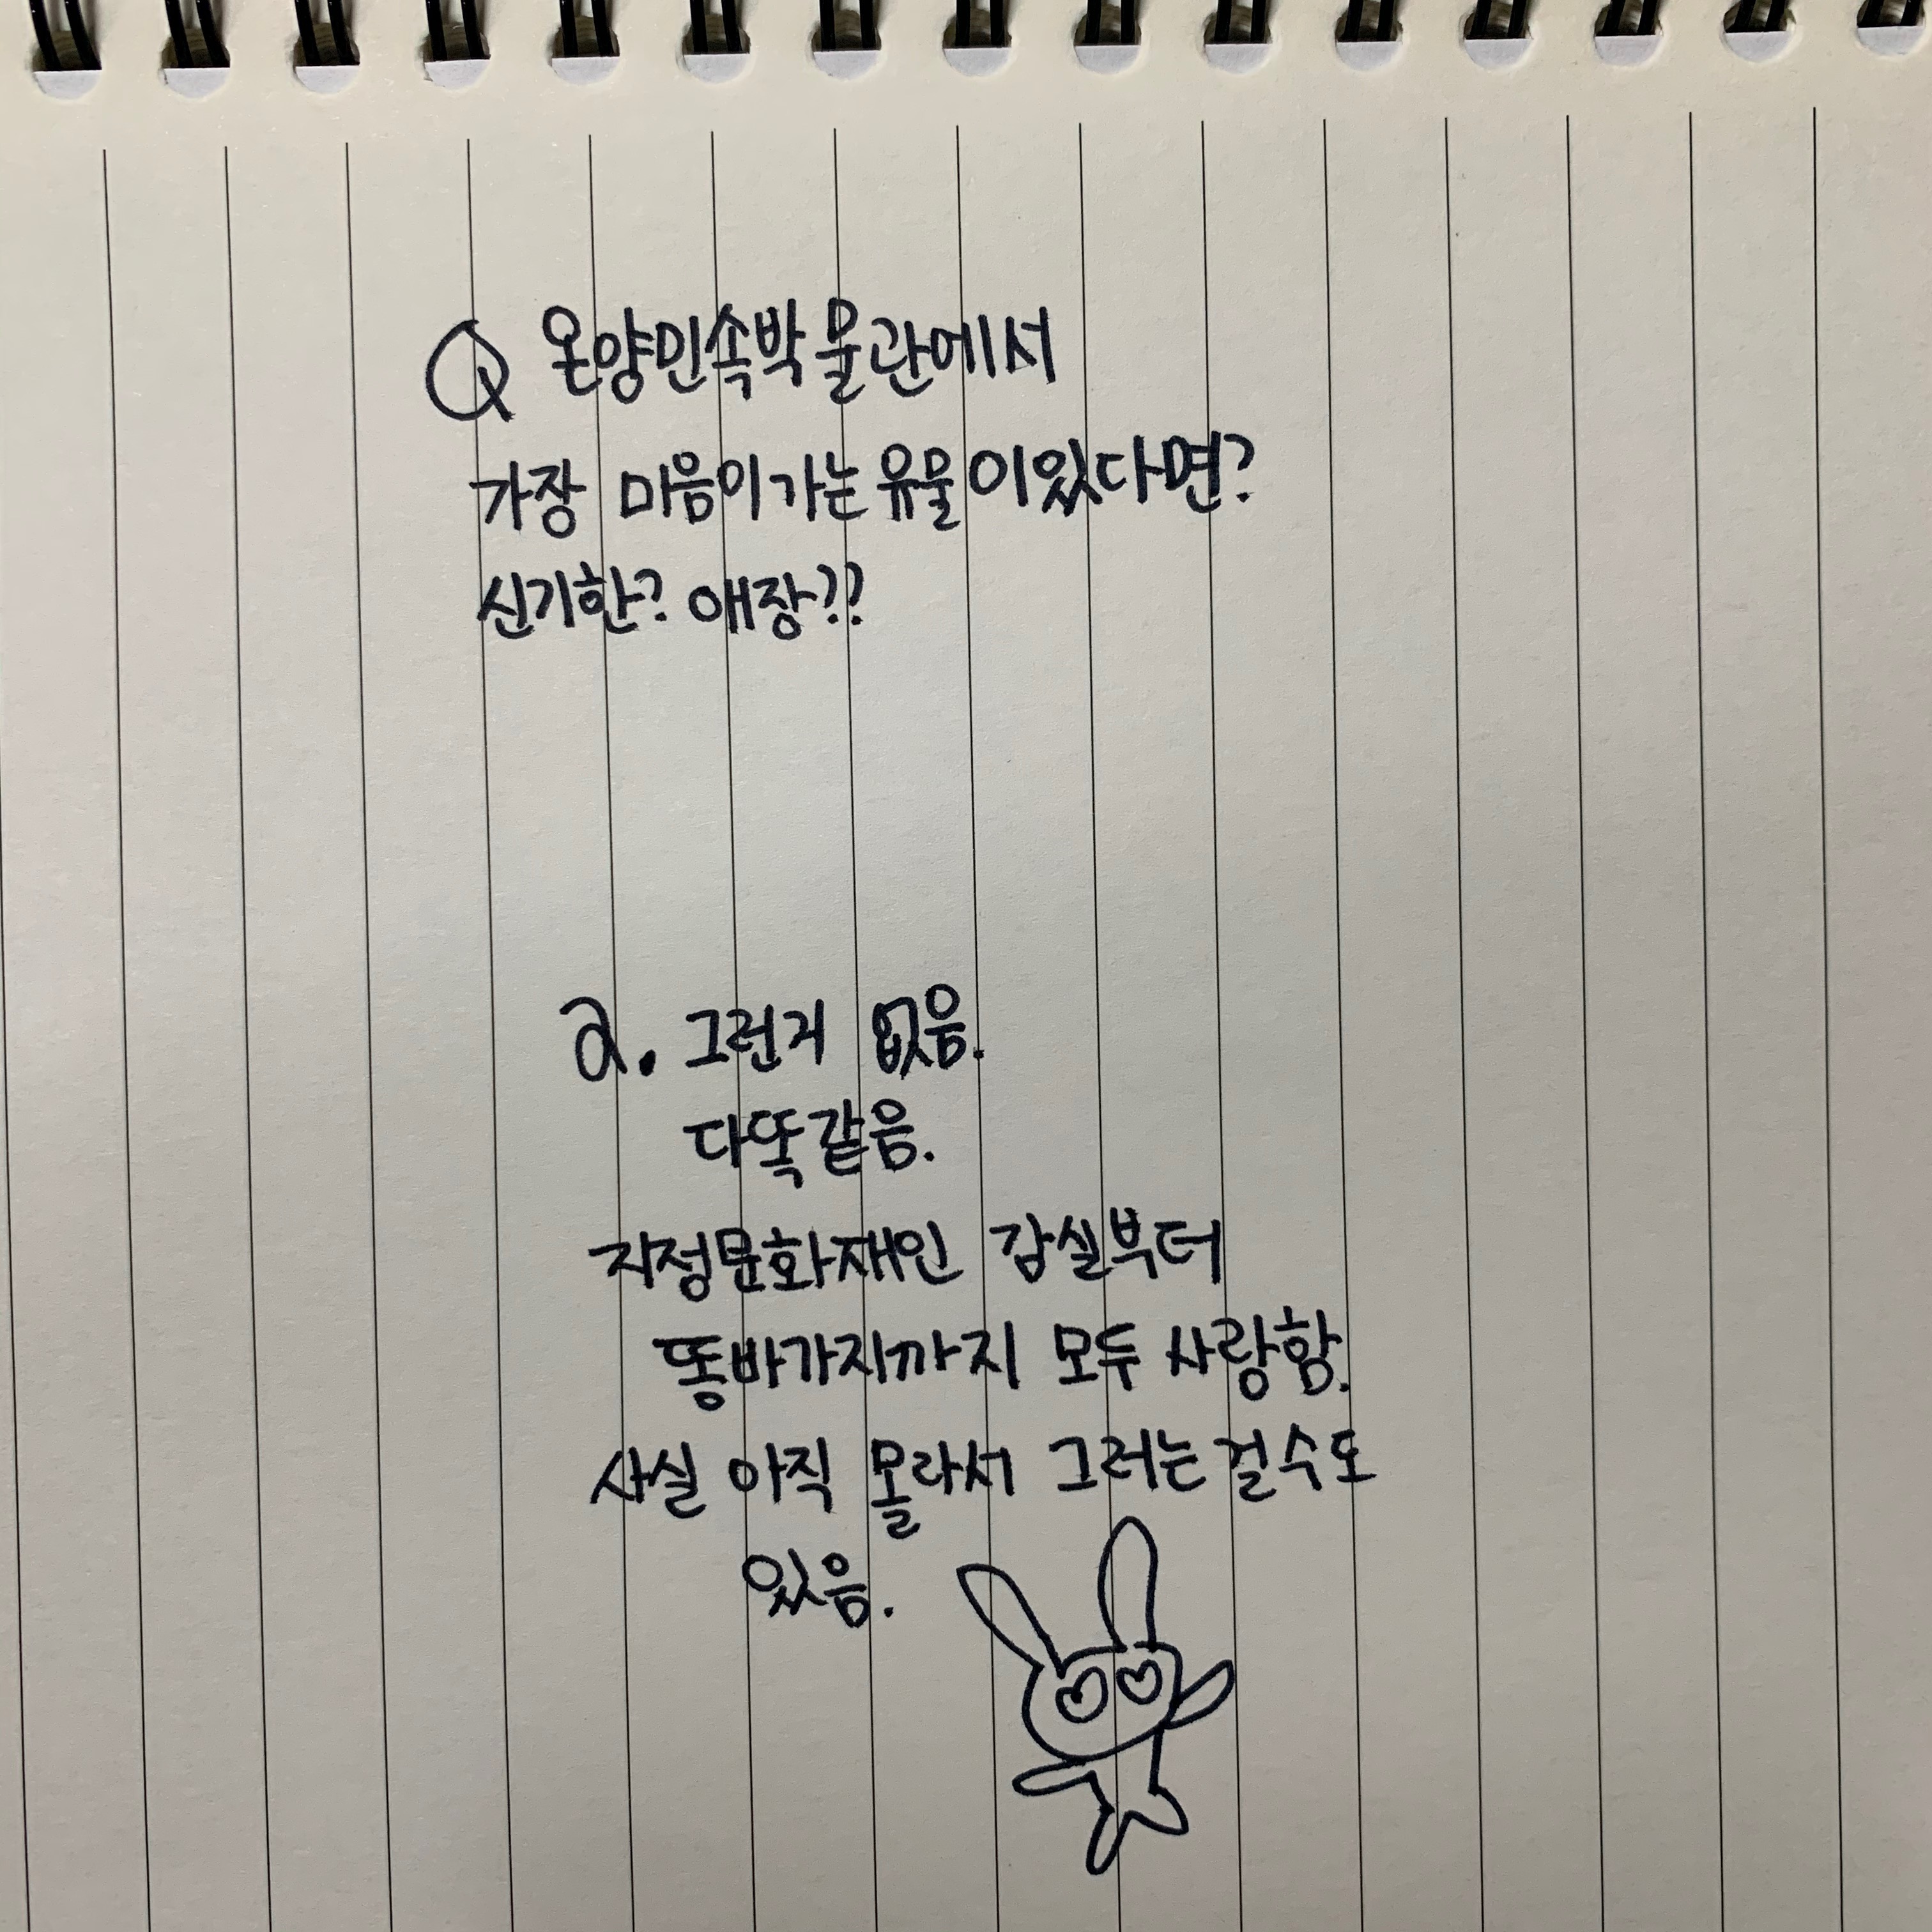 Q 온양민속박물관에서
가장 마음이 가는 유물이있다면?
신기한? 애장??
a. 그런거 없음.
다똑같음.
지정문화재인 감실부터
똥바가지까지 모두 사랑함.
사실 아직 몰라서 그러는걸수도
있음.